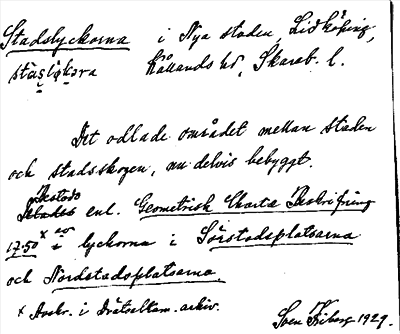 Stadslyckorna i Nya staden, Lidköping,
stáslỳkɐra Kållands hd, Skarab. l.
Det odlade området mellan staden
och stadsskogen, nu delvis bebyggt.
Bestods enl. Geometrisk Charta Beskrifning
1750 x av lyckorna i Sörstadsplatserna
och Nordstadsplatserna.
x Avskr. i Drätselkam. arkiv.
Sven Friberg 1929.